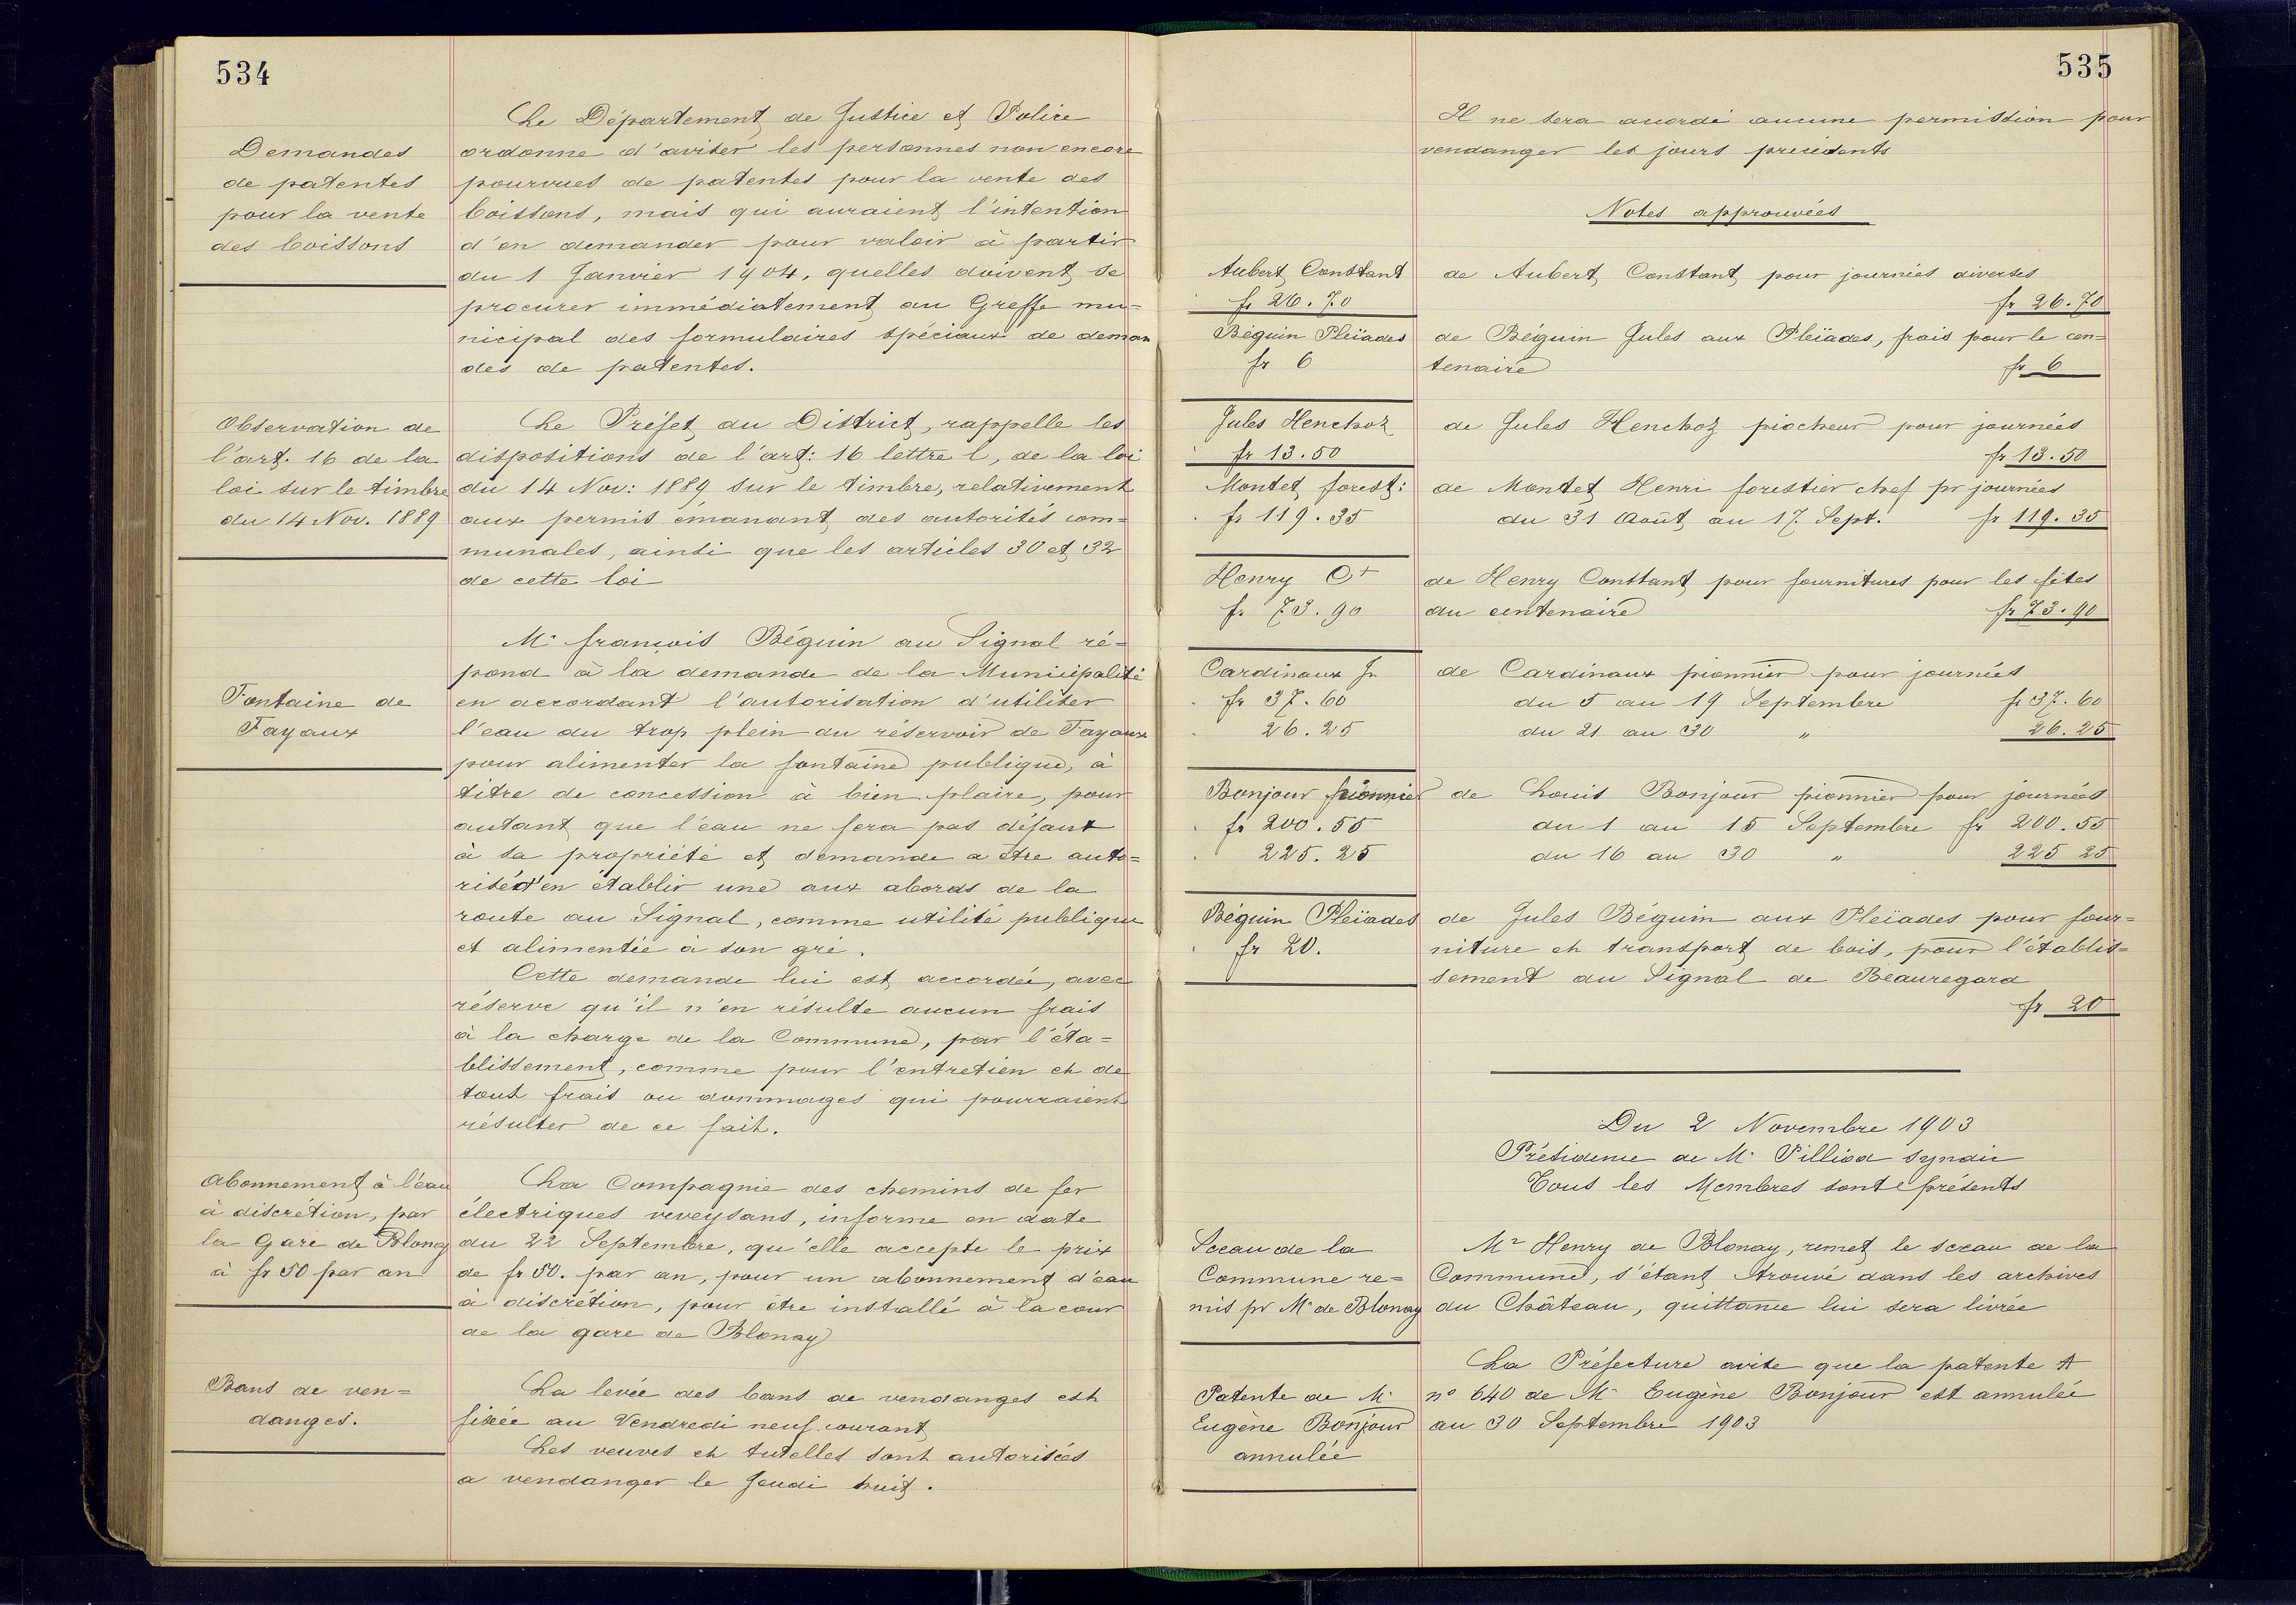 534
Le Département de Justice et Police
Demandes
de patentes
pour la vente
des boissons
ordonne d'aviser les personnes non encore
pourvues de patentes pour la vente des
boissons, mais qui auraient l'intention
d'en demander pour valoir à partir
du 1 Janvier 1904, quelles doivent se
procurer immédiatement au Greffe mu=
nicipal des formulaires spéciaux de deman
des de patentes.
Observation de
l'art. 16 de la
loi sur le timbre
du 14 Nov. 1889
Le Préfet du District, rappelle les
dispositions de l'art: 16 lettre l, de la loi
du 14 Nov: 1889 sur le timbre, relativement
aux permis émanant des autorités com=
munales, ainsi que les articles 30 et 32
de cette loi
Fontaine de
Fayaux
Mr françois Béguin au Signal ré=
pond à la demande de la Municipalité
en accordant l'autorisation d'utiliser
l'eau du trop plein du réservoir de Fayaux
pour alimenter la fontaine publique, à
titre de concession à bien plaire, pour
autant que l'eau ne fera pas défaut
à sa propriété et demande a être auto=
risé d'en établir une aux abords de la
route au Signal, comme utilité publique
et alimentée à son gré.
Cette demande lui est accordée, avec
réserve qu'il n'en résulte aucun frais
à la charge de la Commune, par l'éta=
blissement, comme pour l'entretien et de
tout frais ou dommages qui pourraient
résulter de ce fait.
Abonnement à l'eau
à discrétion, par
la Gare de Blonay
à fr 50 par an
La Compagnie des chemins de fer
électriques veveysans, informe en date
du 22 Septembre, qu'elle accepte le prix
de fr 50. par an, pour un abonnement d'eau
à discrétion, pour être installé à la cour
de la gare de Blonay
Bans de ven=
danges.
La levée des bans de vendanges est
fixée au Vendredi neuf courant
Les veuves et tutelles sont autorisées
a vendanger le Jeudi huit.
535
Il ne sera accordé aucune permission pour
vendanger les jours précédents
Notes approuvées
Aubert Constant
fr 26.70
de Aubert Constant pour journées diverses
fr 26.70
Béguin Pleïades
fr 6
de Béguin Jules aux Pleïades, frais pour le cen=
tenaire fr 6
Jules Henchoz
fr 13.50
de Jules Henchoz piocheur pour journées
fr 13.50
Montet forest:
fr 119.35
de Montet Henri forestier chef pr journées
du 31 Août au 17 Sept. fr 119.35
Henry Ct
fr 73.90
de Henry Constant pour fournitures pour les fêtes
du centenaire fr 73.90
Cardinaux Jn
fr 37.60
26.25
de Cardinaux pionnier pour journées
du 5 au 19 Septembre fr 37.60
du 21 au 30 " 26.25
Bonjour pionnier
fr 200.55
225.25
de Louis Bonjour pionnier pour journées
du 1 au 15 Septembre fr 200.55
du 16 au 30 " 225 25
Béguin Pleïades
fr 20.
de Jules Béguin aux Pleïades pour four=
niture et transport de bois, pour l'établis=
sement du Signal de Beauregard
fr 20
Du 2 Novembre 1903
Présidence de Mr Pilliod syndic
Tous les Membres sont présents
Sceau de la
Commune re=
mis pr Mr de Blonay
Mr Henry de Blonay, remet le sceau de la
Commune, s'étant trouvé dans les archives
du Château, quittance lui sera livrée
Patente de Mr
Eugène Bonjour
annulée
La Préfecture avise que la patente A
no 640 de Mr Eugène Bonjour est annulée
au 30 Septembre 1903